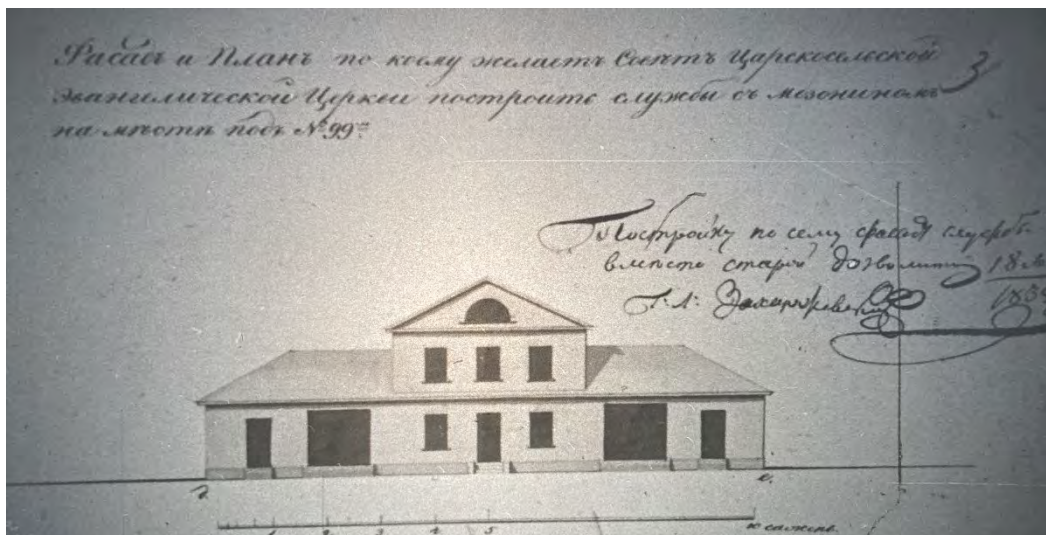 Фасадъ и Планъ по коему желаетъ Царскосельской
Эвангелической Церкви построить службы съ мезониномъ
на мѣстѣ подъ № 99мъ
3
Постройку по сему фасаду службъ
вместо старой дозволить 18
Г. Л: Захаржевскій
1 2 3 4 5 10 сажень